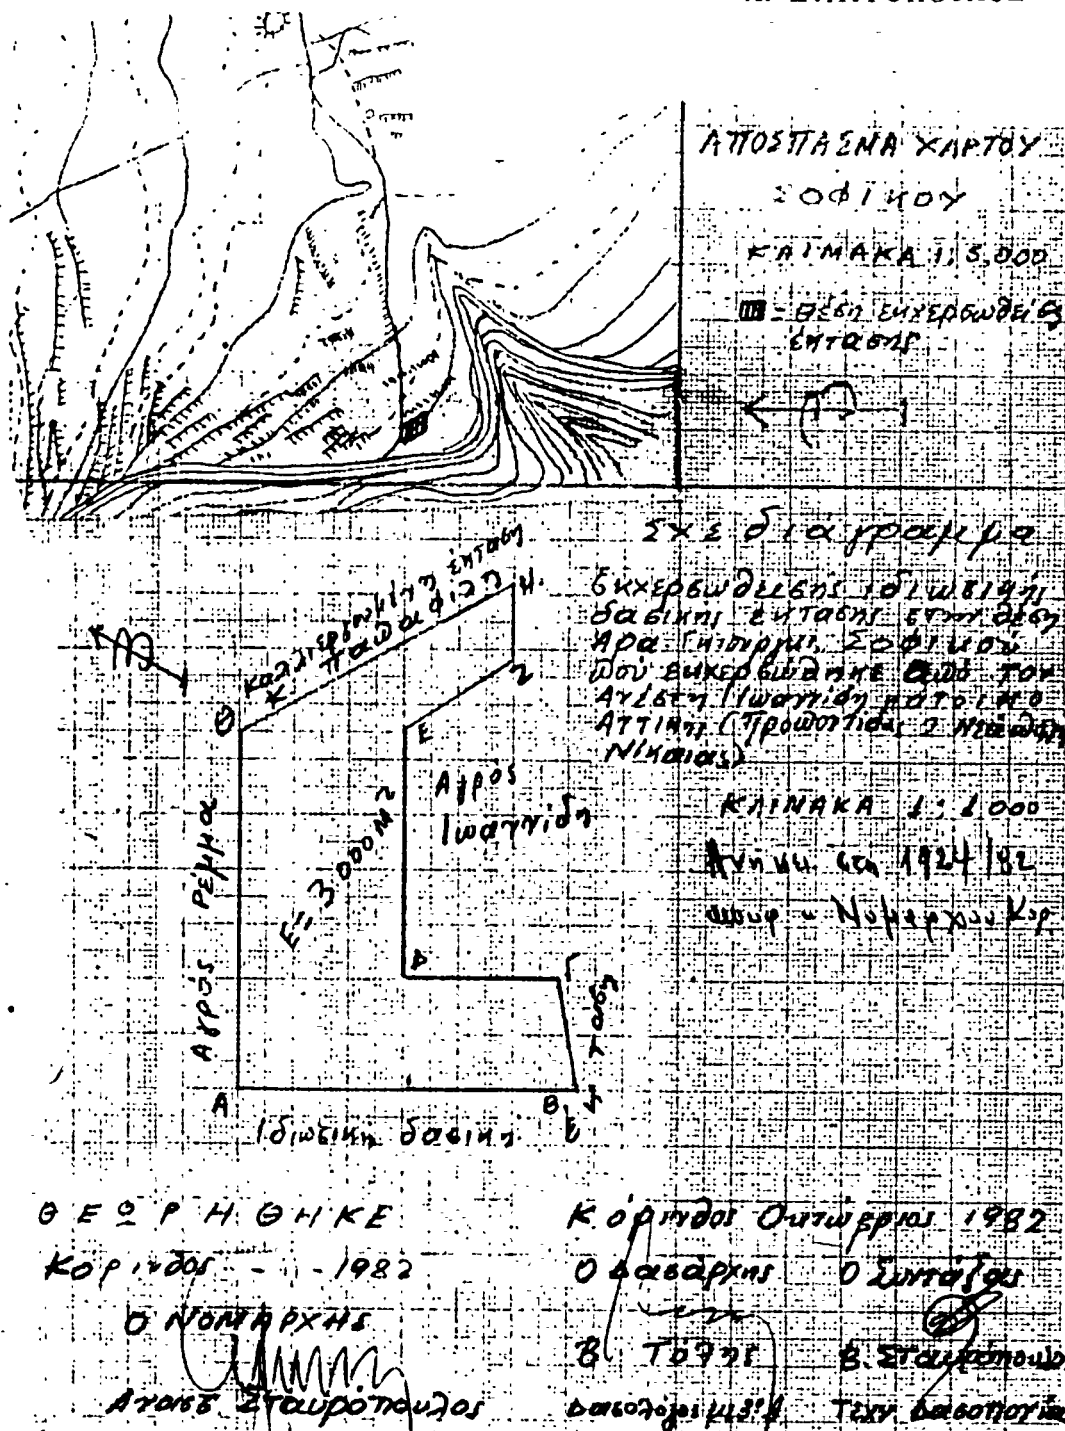 ΑΠΟΣΠΑΣΜΑ ΧΑΡΤΟΥ
ΣΟΦΙΚΟΥ
ΚΛΙΜΑΚΑ 1:5,000
= Θέση εκχερσωθείσης
έκτασης
Σχεδιάγραμμα
Εκχερσωθείσης ιδιωτικής
δασικής έκτασης στην θέση
Σοφικού
που εκχερσώθηκε από τον
Ανέστη Ιωαννίδη κάτοικο
Αττικής (Προποντίδος 2
Νίκαιας)
ΚΛΙΜΑΚΑ 1:1000
Ανήκει στη 1924/82
Νομάρχου Κορ
καλλιεργουμένη έκταση
Κ. παπαφίση
Η
Ζ
Θ
Ε
Αγρός
Ιωαννίδη
Ε= 3000 Μ2
Αγρός Ρέμμα
Δ
Γ
Α
Β
Ιδιωτική δασική
ΘΕΩΡΗΘΗΚΕ
Κόρινθος - - 1982
Ο ΝΟΜΑΡΧΗΣ
Σταυρόπουλος
Κόρινθος Οκτώβριος 1982
Ο Δασάρχης
Ο Συντάξας
Β. Τόλης
Β. Σταυρόπουλο
Δασολόγος
Τεχν Δασοπονία